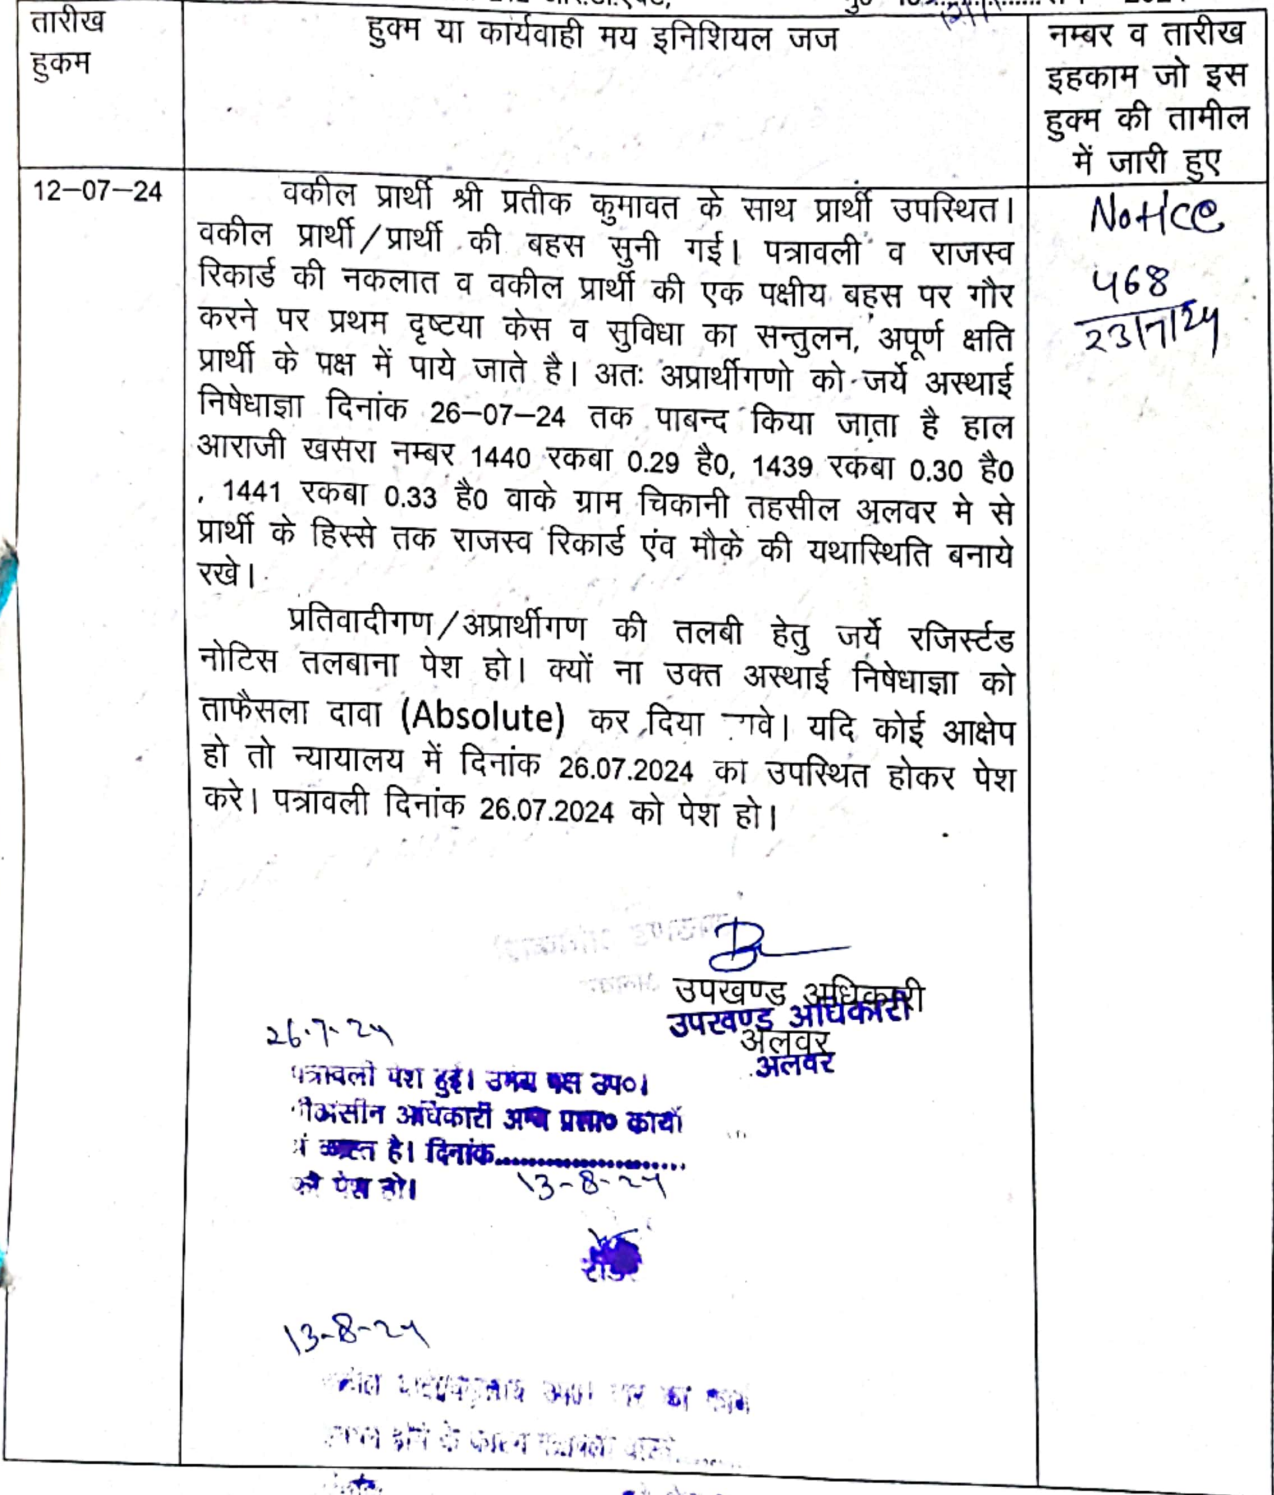 तारीख
हुकम
हुक्म या कार्यवाही मय इनिशियल जज
नम्बर व तारीख
इहकाम जो इस
हुक्म की तामील
में जारी हुए
12–07–24
वकील प्रार्थी श्री प्रतीक कुमावत के साथ प्रार्थी उपस्थित।
वकील प्रार्थी/प्रार्थी की बहस सुनी गई। पत्रावली व राजस्व
रिकार्ड की नकलात व वकील प्रार्थी की एक पक्षीय बहस पर गौर
करने पर प्रथम दृष्टया केस व सुविधा का सन्तुलन, अपूर्ण क्षति
प्रार्थी के पक्ष में पाये जाते है। अतः अप्रार्थीगणो को जर्ये अस्थाई
निषेधाज्ञा दिनांक 26–07–24 तक पाबन्द किया जाता है हाल
आराजी खसरा नम्बर 1440 रकबा 0.29 है0, 1439 रकबा 0.30 है0
, 1441 रकबा 0.33 है0 वाके ग्राम चिकानी तहसील अलवर मे से
प्रार्थी के हिस्से तक राजस्व रिकार्ड एंव मौके की यथास्थिति बनाये
रखे।
प्रतिवादीगण/अप्रार्थीगण की तलबी हेतु जर्ये रजिर्स्टड
नोटिस तलबाना पेश हो। क्यों ना उक्त अस्थाई निषेधाज्ञा को
ताफैसला दावा (Absolute) कर दिया यदि कोई आक्षेप
हो तो न्यायालय में दिनांक 26.07.2024 का उपस्थित होकर पेश
करे। पत्रावली दिनांक 26.07.2024 को पेश हो।
Notice
468
23/7/24
उपखण्ड अधिकारी
उपखण्ड अधिकारी
अलवर
अलवर
26-7-24
पत्रावली पेश हुई। उभय पक्ष उप०।
अधिकारी अन्य प्रशा० कार्यो
व्यस्त है। दिनांक......................
13-8-24
को पेश हो।
रीडर
13-8-24
होने के कारण पत्रावली